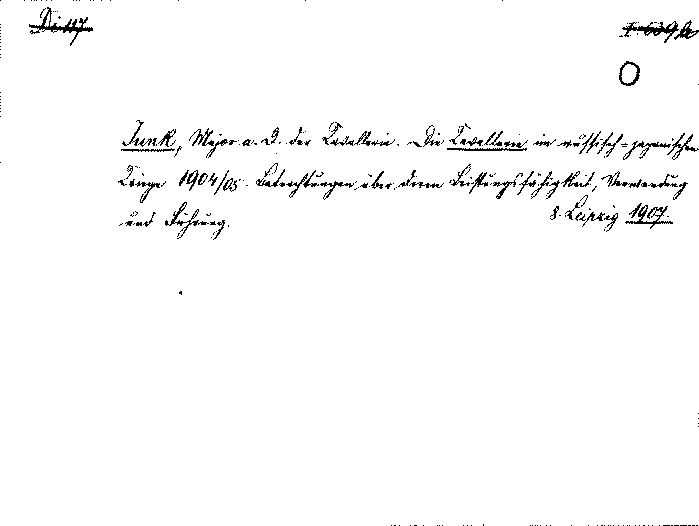 Di 117
I 639 a
O
Junk, Major a. D. der Kavallerie. Die Kavallerie im russisch-japanischen
Kriege 1904/05. Betrachtungen über deren Leistungsfähigkeit, Verwendung
und Führung.
8. Leipzig 1907.